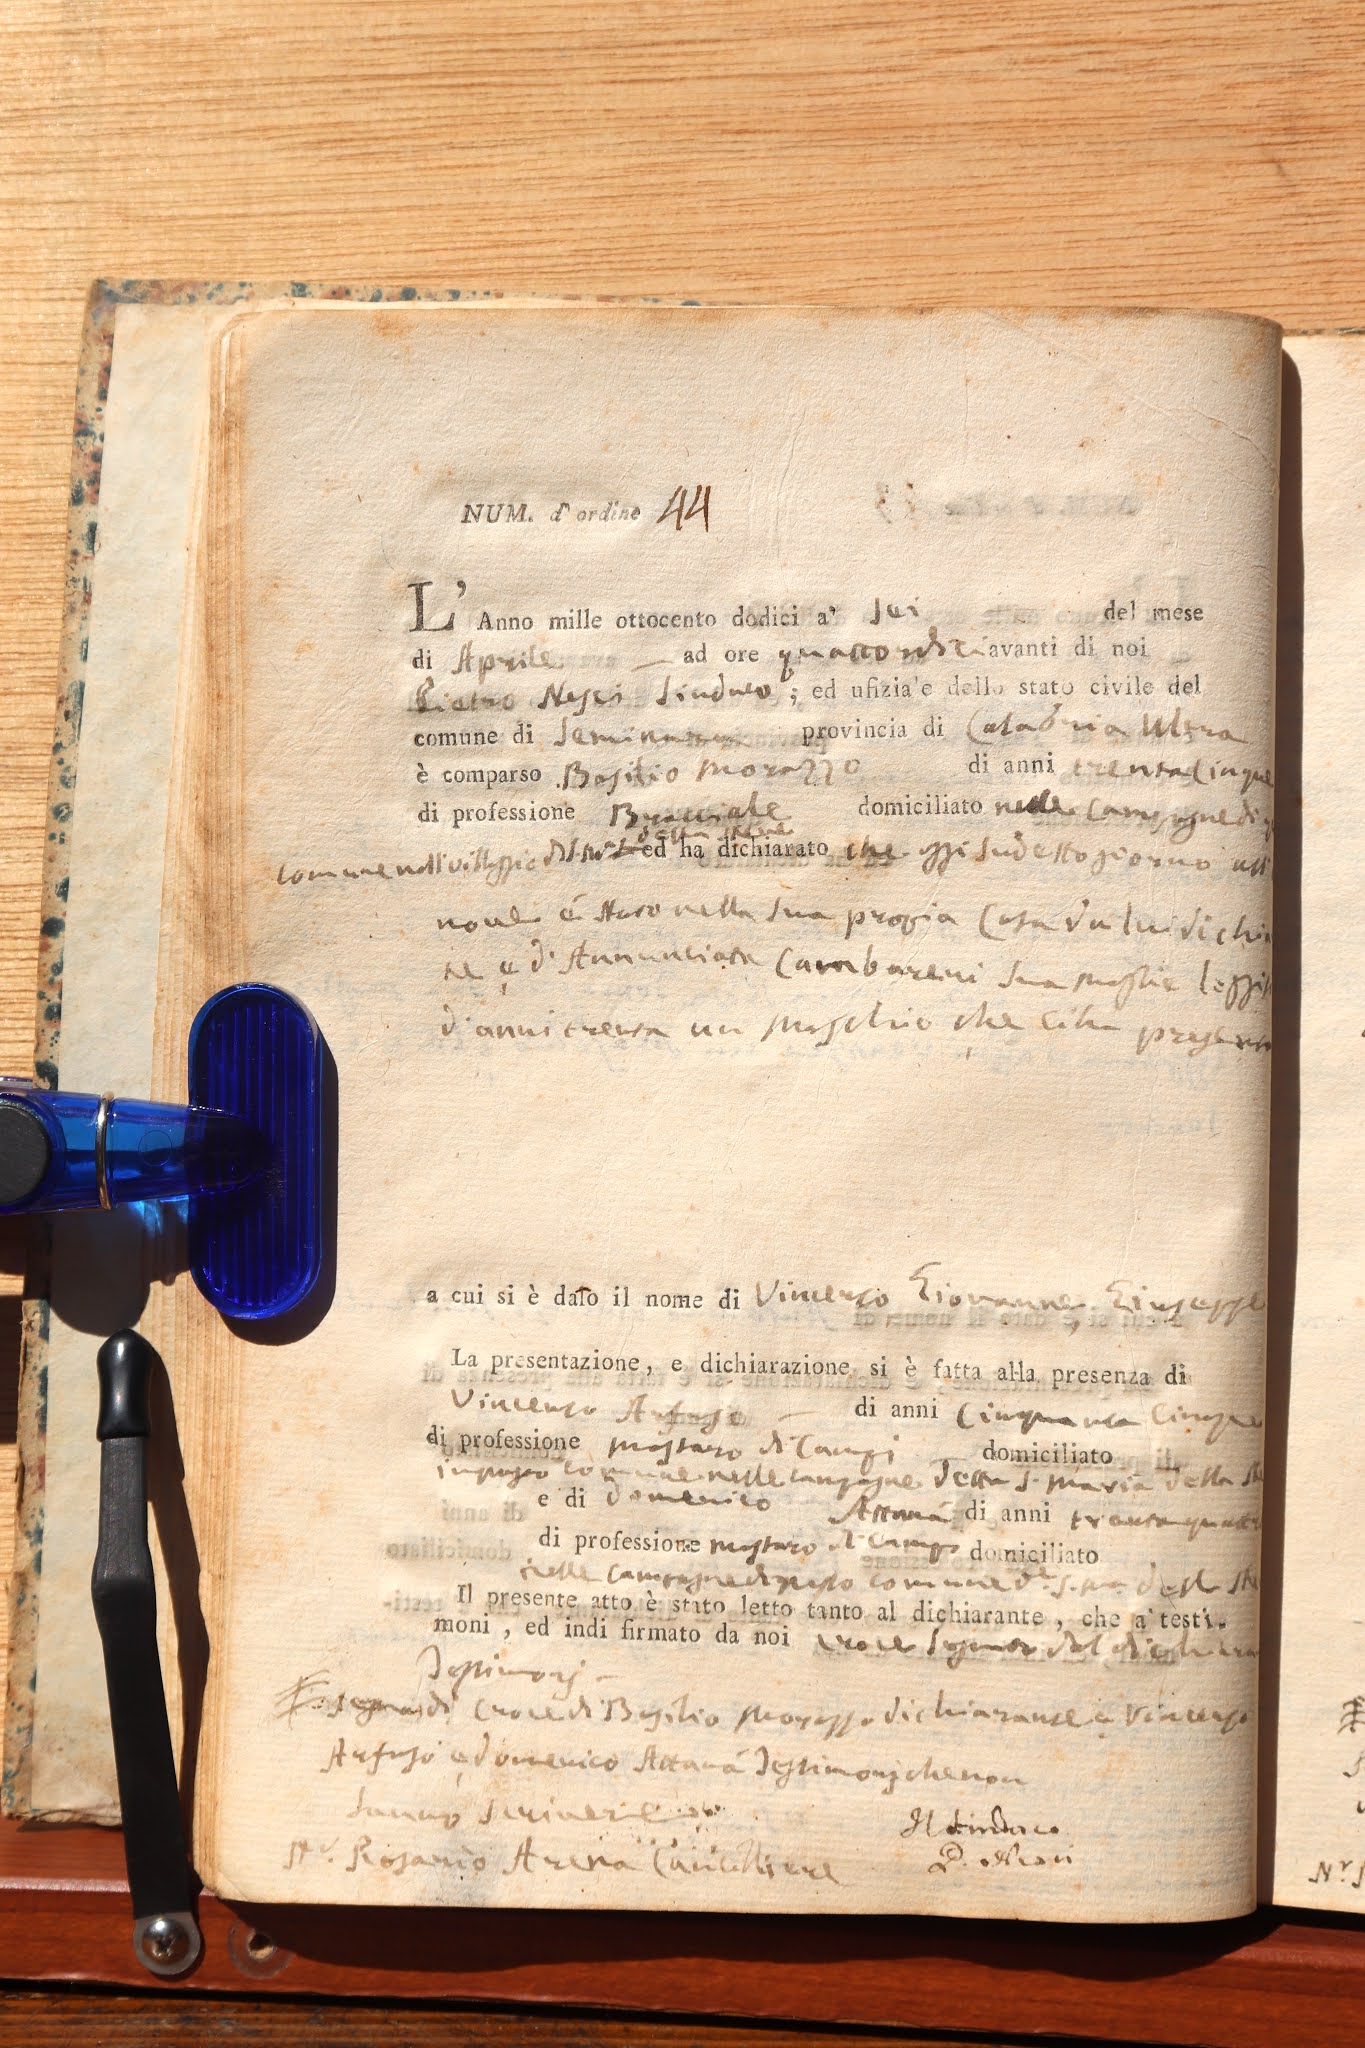 NUM. d'ordine 44
L' Anno mille ottocento dodici a' sei del mese
di Aprile ad ore quattordici avanti di noi
Pietro Nesci Sindaco ; ed ufizia'e dello stato civile del
comune di Seminara provincia di Calabria Ultra
è comparso Basilio Morazzo di anni trentacinque
di professione Bracciale domiciliato nelle Campagne di
della
comune nell villaggio ed ha dichiarato che oggi sudetto giorno
nove è Nato nella sua propia Casa da lui dichia
te e d'Annunciata Cambareri sua moglie
d'anni trenta un maschio che ci ha presen
a cui si è dato il nome di Vincenzo Giovanne Giuseppe
La presentazione, e dichiarazione si è fatta alla presenza di
Vincenzo Arfuso di anni Cinquanta Cinque
di professione mastaro di Campi domiciliato
in questo comune nelle Campagne della S. Maria della
e di Domenico Attanà di anni trenta quattr
di professione mastaro di Campo domiciliato
nelle Campagne di questo comune
Il presente atto è stato letto tanto al dichiarante, che a' testi-
moni, ed indi firmato da noi croce del dichiara
Testimonj
di Croce di Basilio Morazzo dichiarante e Vincenzo
Arfuso e domenico Attanà Testimonj che non
sanno scrivere
Rosario Arena Cancelliere
Il Sindaco
P. Nesci